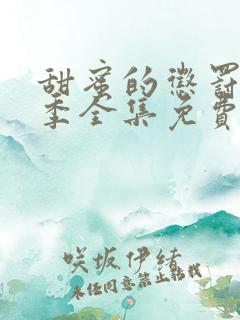 甜蜜的惩罚
季全集免费
咲坂伊绪
未经同意禁止转载